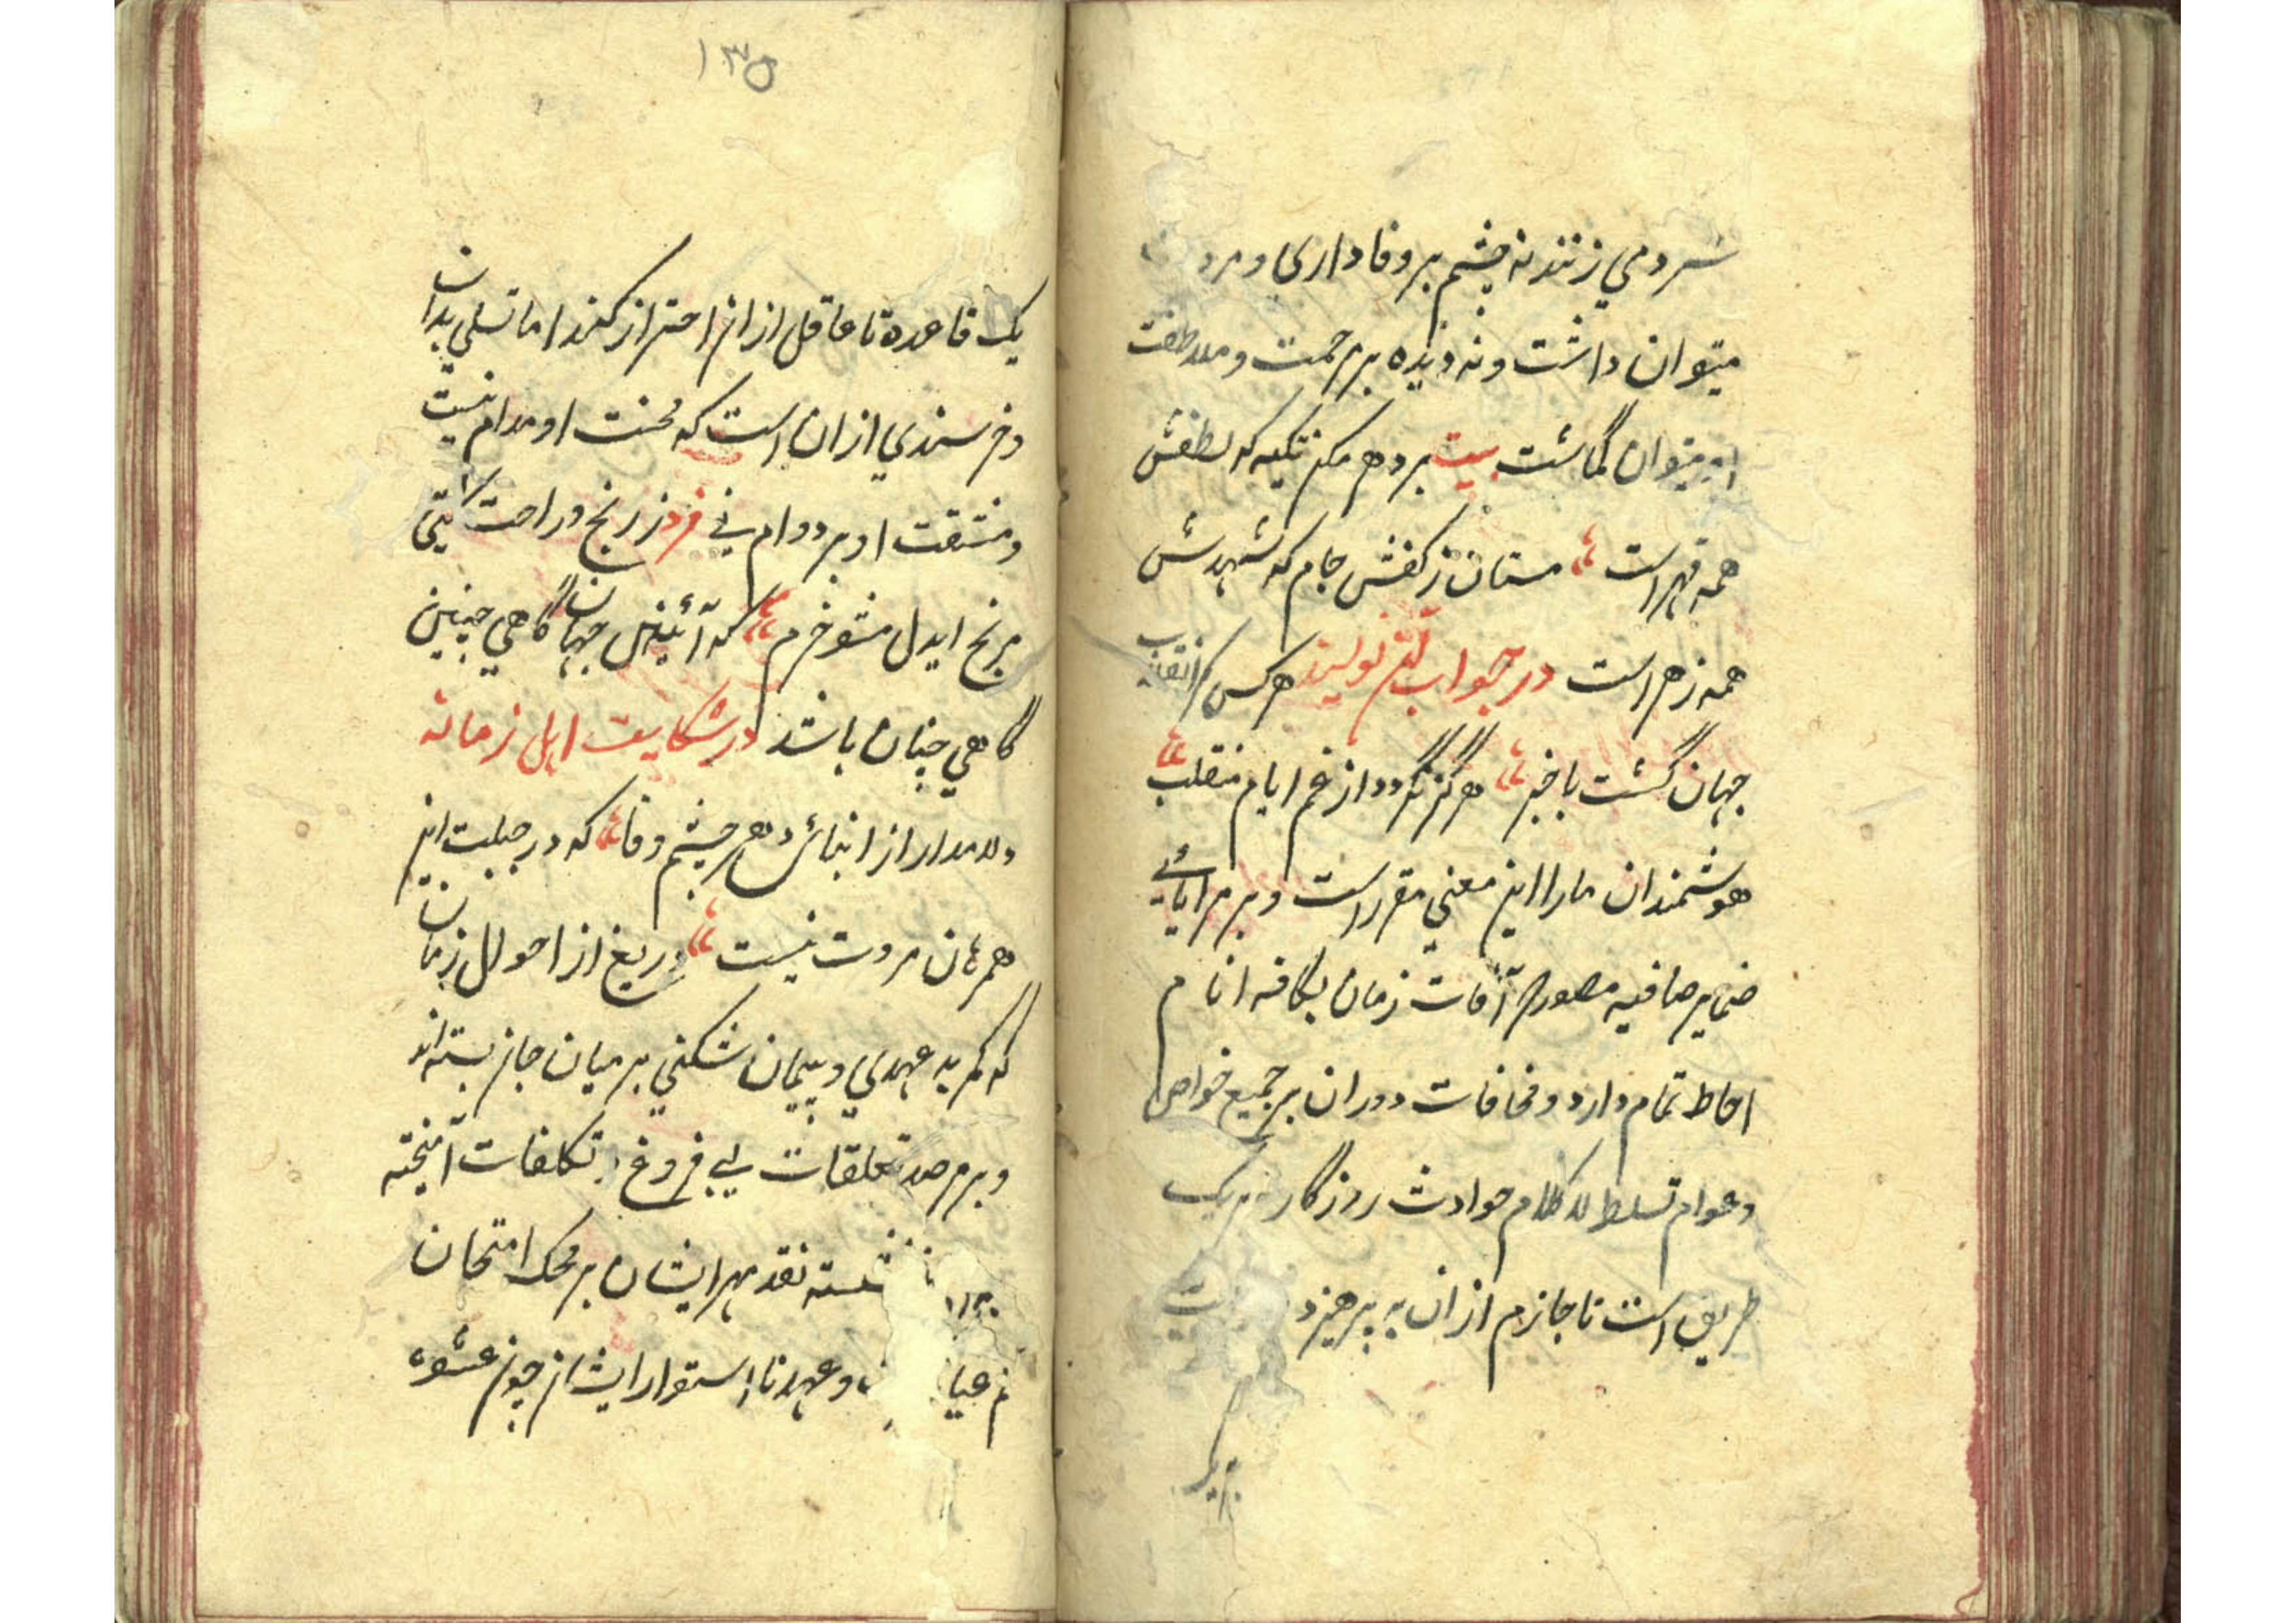 سر دمي زنند نه چشم بر وفا داري و مرو
ميتوان داشت و نه ديده بر مرحمت و ملاطفت
ميتوان گماشت بيت بر دهر مكن تكيه كه لطفش
همه قهر است مستان ز كفش جام كه شهدش
همه زهر است در جواب اين نويسند هر كس كز انقلاب
جهان گشت با خبر هرگز نگردد از غم ايام منقلب
هوشمندان مارا اين معني مقرر است و بر مراياي
ضماير صافيه مصور كه آفات زمان بكافه انام
احاطه تمام دارد و مخافات دوران بر جميع خواص
و عوام تسلط لا كلام حوادث روزگار نه بر يك
طريق است تا جازم از ان به پرهيزد
بر يك
١٣٥
يك قاعده تا عاقل از ان احتراز كند اما تسلي بدان
و خرسندي از ان است كه محنت او مدام نيست
و مشقت او بر دوام ني فرد ز رنج و راحت گيتي
مرنج ايدل مشو خرم كه آئين جهان گاهي چنين
گاهي چنان باشد در شكايت اهل زمانه
دلا مدار از ابنائ دهر چشم وفا كه در جبلت اين
همرهان مروت نيست دريغ از احوال زمان
كه كمر بد عهدي و پيمان شكني بر ميان جان بسته اند
و بر مرصد تعلقات بي فروغ تكلفات آميخته
نشسته نقد مهر ايشان بر محك امتحان
عيار و عهد نا استوار ايشان چون عشوه